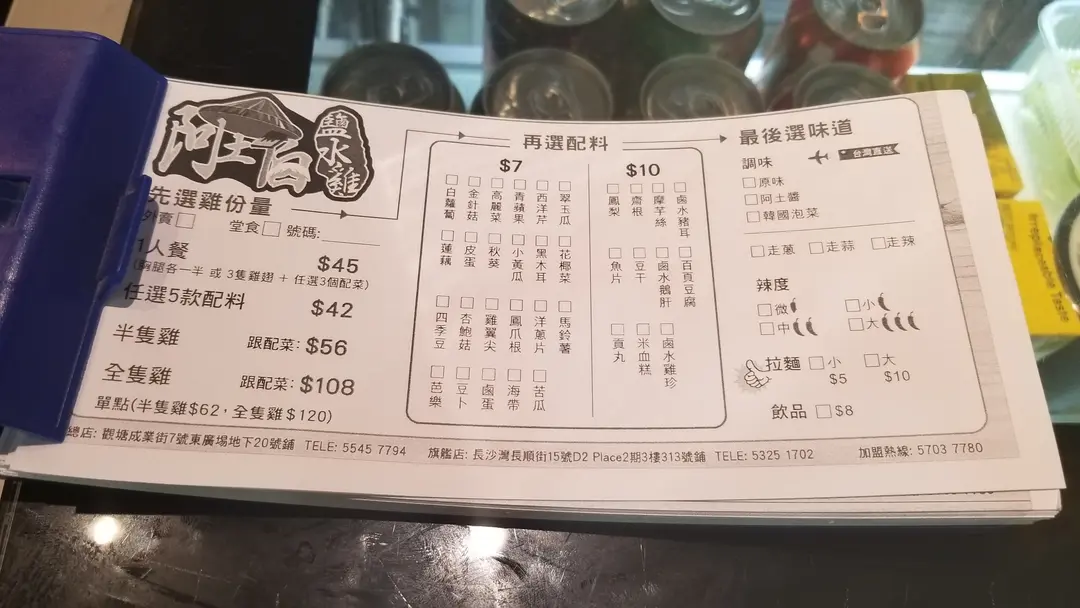 阿土伯
鹽水雞
先選雞份量
外賣 堂食 號碼:
1人餐 $45
(胸腿各一半 或 3隻雞翅 + 任選3個配菜)
任選5款配料 $42
半隻雞 跟配菜: $56
全隻雞 跟配菜: $108
單點(半隻雞$62,全隻雞$120)
再選配料
$7
白蘿蔔
金針菇
高麗菜
青蘋果
西洋芹
翠玉瓜
蓮藕
皮蛋
秋葵
小黃瓜
黑木耳
花椰菜
四季豆
杏鮑菇
雞翼尖
鳳爪根
洋蔥片
馬鈴薯
芭樂
豆卜
鹵蛋
海帶
苦瓜
$10
鳳梨
齋根
摩芋絲
鹵水豬耳
魚片
豆干
鹵水鵝肝
百頁豆腐
貢丸
米血糕
鹵水雞珍
最後選味道
調味 台灣直送
原味
阿土醬
韓國泡菜
走蔥 走蒜 走辣
辣度
微 小
中 大
拉麵 小 大
$5 $10
飲品 $8
總店: 觀塘成業街7號東廣場地下20號鋪 TELE: 5545 7794 旗艦店: 長沙灣長順街15號D2 Place2期3樓313號鋪 TELE: 5325 1702 加盟熱線: 5703 7780
Irreplaceable Taste